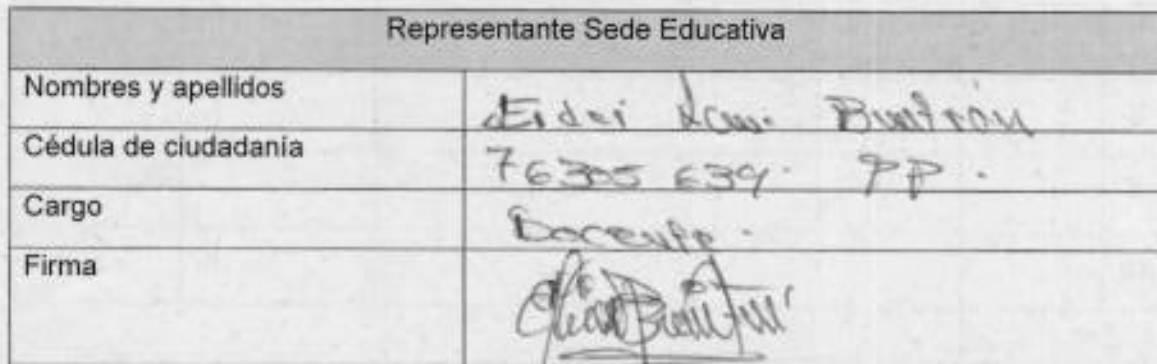 Representante Sede Educativa
Nombres y apellidos
Cédula de ciudadanía 76305 639. PP.
Cargo Docente.
Firma